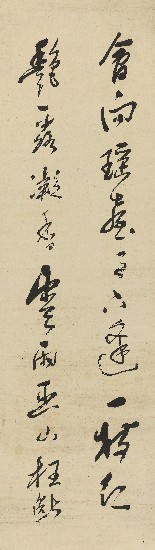 會向瑤臺月下逢一枝紅
艶露凝香雲雨巫山枉斷